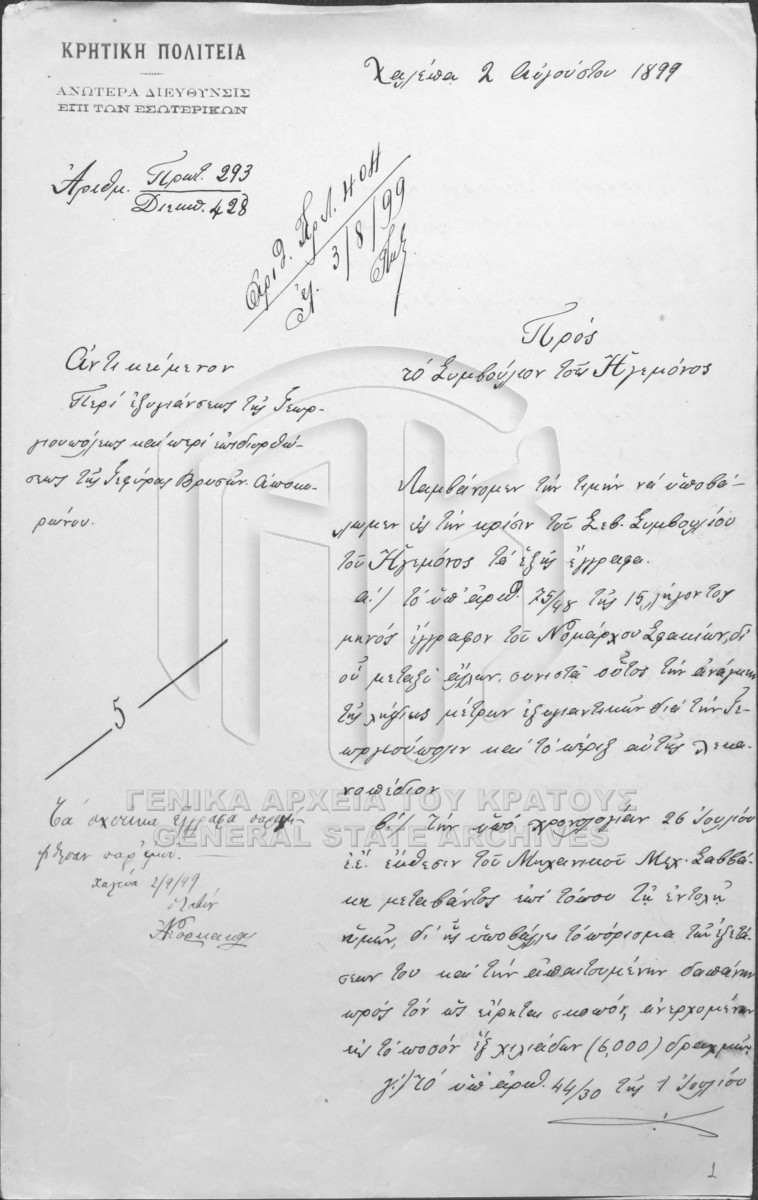 ΚΡΗΤΙΚΗ ΠΟΛΙΤΕΙΑ
ΑΝΩΤΕΡΑ ΔΙΕΥΘΥΝΣΙΣ
ΕΠΙ ΤΩΝ ΕΣΩΤΕΡΙΚΩΝ
Χαλέπα 2 Αὐγούστου 1899
Ἀριθμ. Πρωτ. 293
Διεκπ. 428
Ἀριθ. Πρ Λ. 404
Ἐλ. 3/8/99
Πρὸς
τὸ Συμβούλιον τοῦ Ἡγεμόνος
Ἀντικείμενον
Περὶ ἐξυγιάνσεως τῆς Γεωρ-
γιουπόλεως καὶ περὶ ἐπιδιορθώ-
σεως τῆς Γεφύρας Βρυσῶν Ἀποκο-
ρώνου.
Λαμβάνομεν τὴν τιμὴν νὰ ὑποβά-
λωμεν εἰς τὴν κρίσιν τοῦ Σεβ. Συμβουλίου
τοῦ Ἡγεμόνος τὰ ἑξῆς ἔγγραφα.
α!) τὸ ὑπ' ἀριθ. 75/48 τῆς 15 λήγοντος
μηνὸς ἔγγραφον τοῦ Νομάρχου Σφακίων, δι'
οὗ μεταξὺ ἄλλων, συνιστᾷ οὗτος τὴν ἀνάγκην
τῆς λήψεως μέτρων ἐξυγιαντικῶν διὰ τὴν Γε-
ωργιούπολιν καὶ τὸ πέριξ αὐτῆς λεκα-
νοπέδιον
β!) τὴν ὑπὸ χρονολογίαν 26 Ἰουλίου
ἐ.ἔ. ἔκθεσιν τοῦ Μηχανικοῦ Μιχ. Σαββά-
κη μεταβάντος ἐπὶ τόπου τῇ ἐντολῇ
ἡμῶν, δι' ἧς ὑποβάλλει τὸ πόρισμα τῶν ἐξετά-
σεών του καὶ τὴν ἀπαιτουμένην δαπάνην
πρὸς τὸν ὡς εἴρηται σκοπόν, ἀνερχομένην
εἰς τὸ ποσὸν ἓξ χιλιάδων (6,000) δραχμῶν
γ!) τὸ ὑπ' ἀριθ. 44/30 τῆς 1 Ἰουλίου
5
Τὰ σχετικὰ ἔγγραφα παρελή-
φθησαν παρ' ἐμοῦ.
Χαλέπα 2/9/99
ΓΕΝΙΚΑ ΑΡΧΕΙΑ ΤΟΥ ΚΡΑΤΟΥΣ
GENERAL STATE ARCHIVES
1